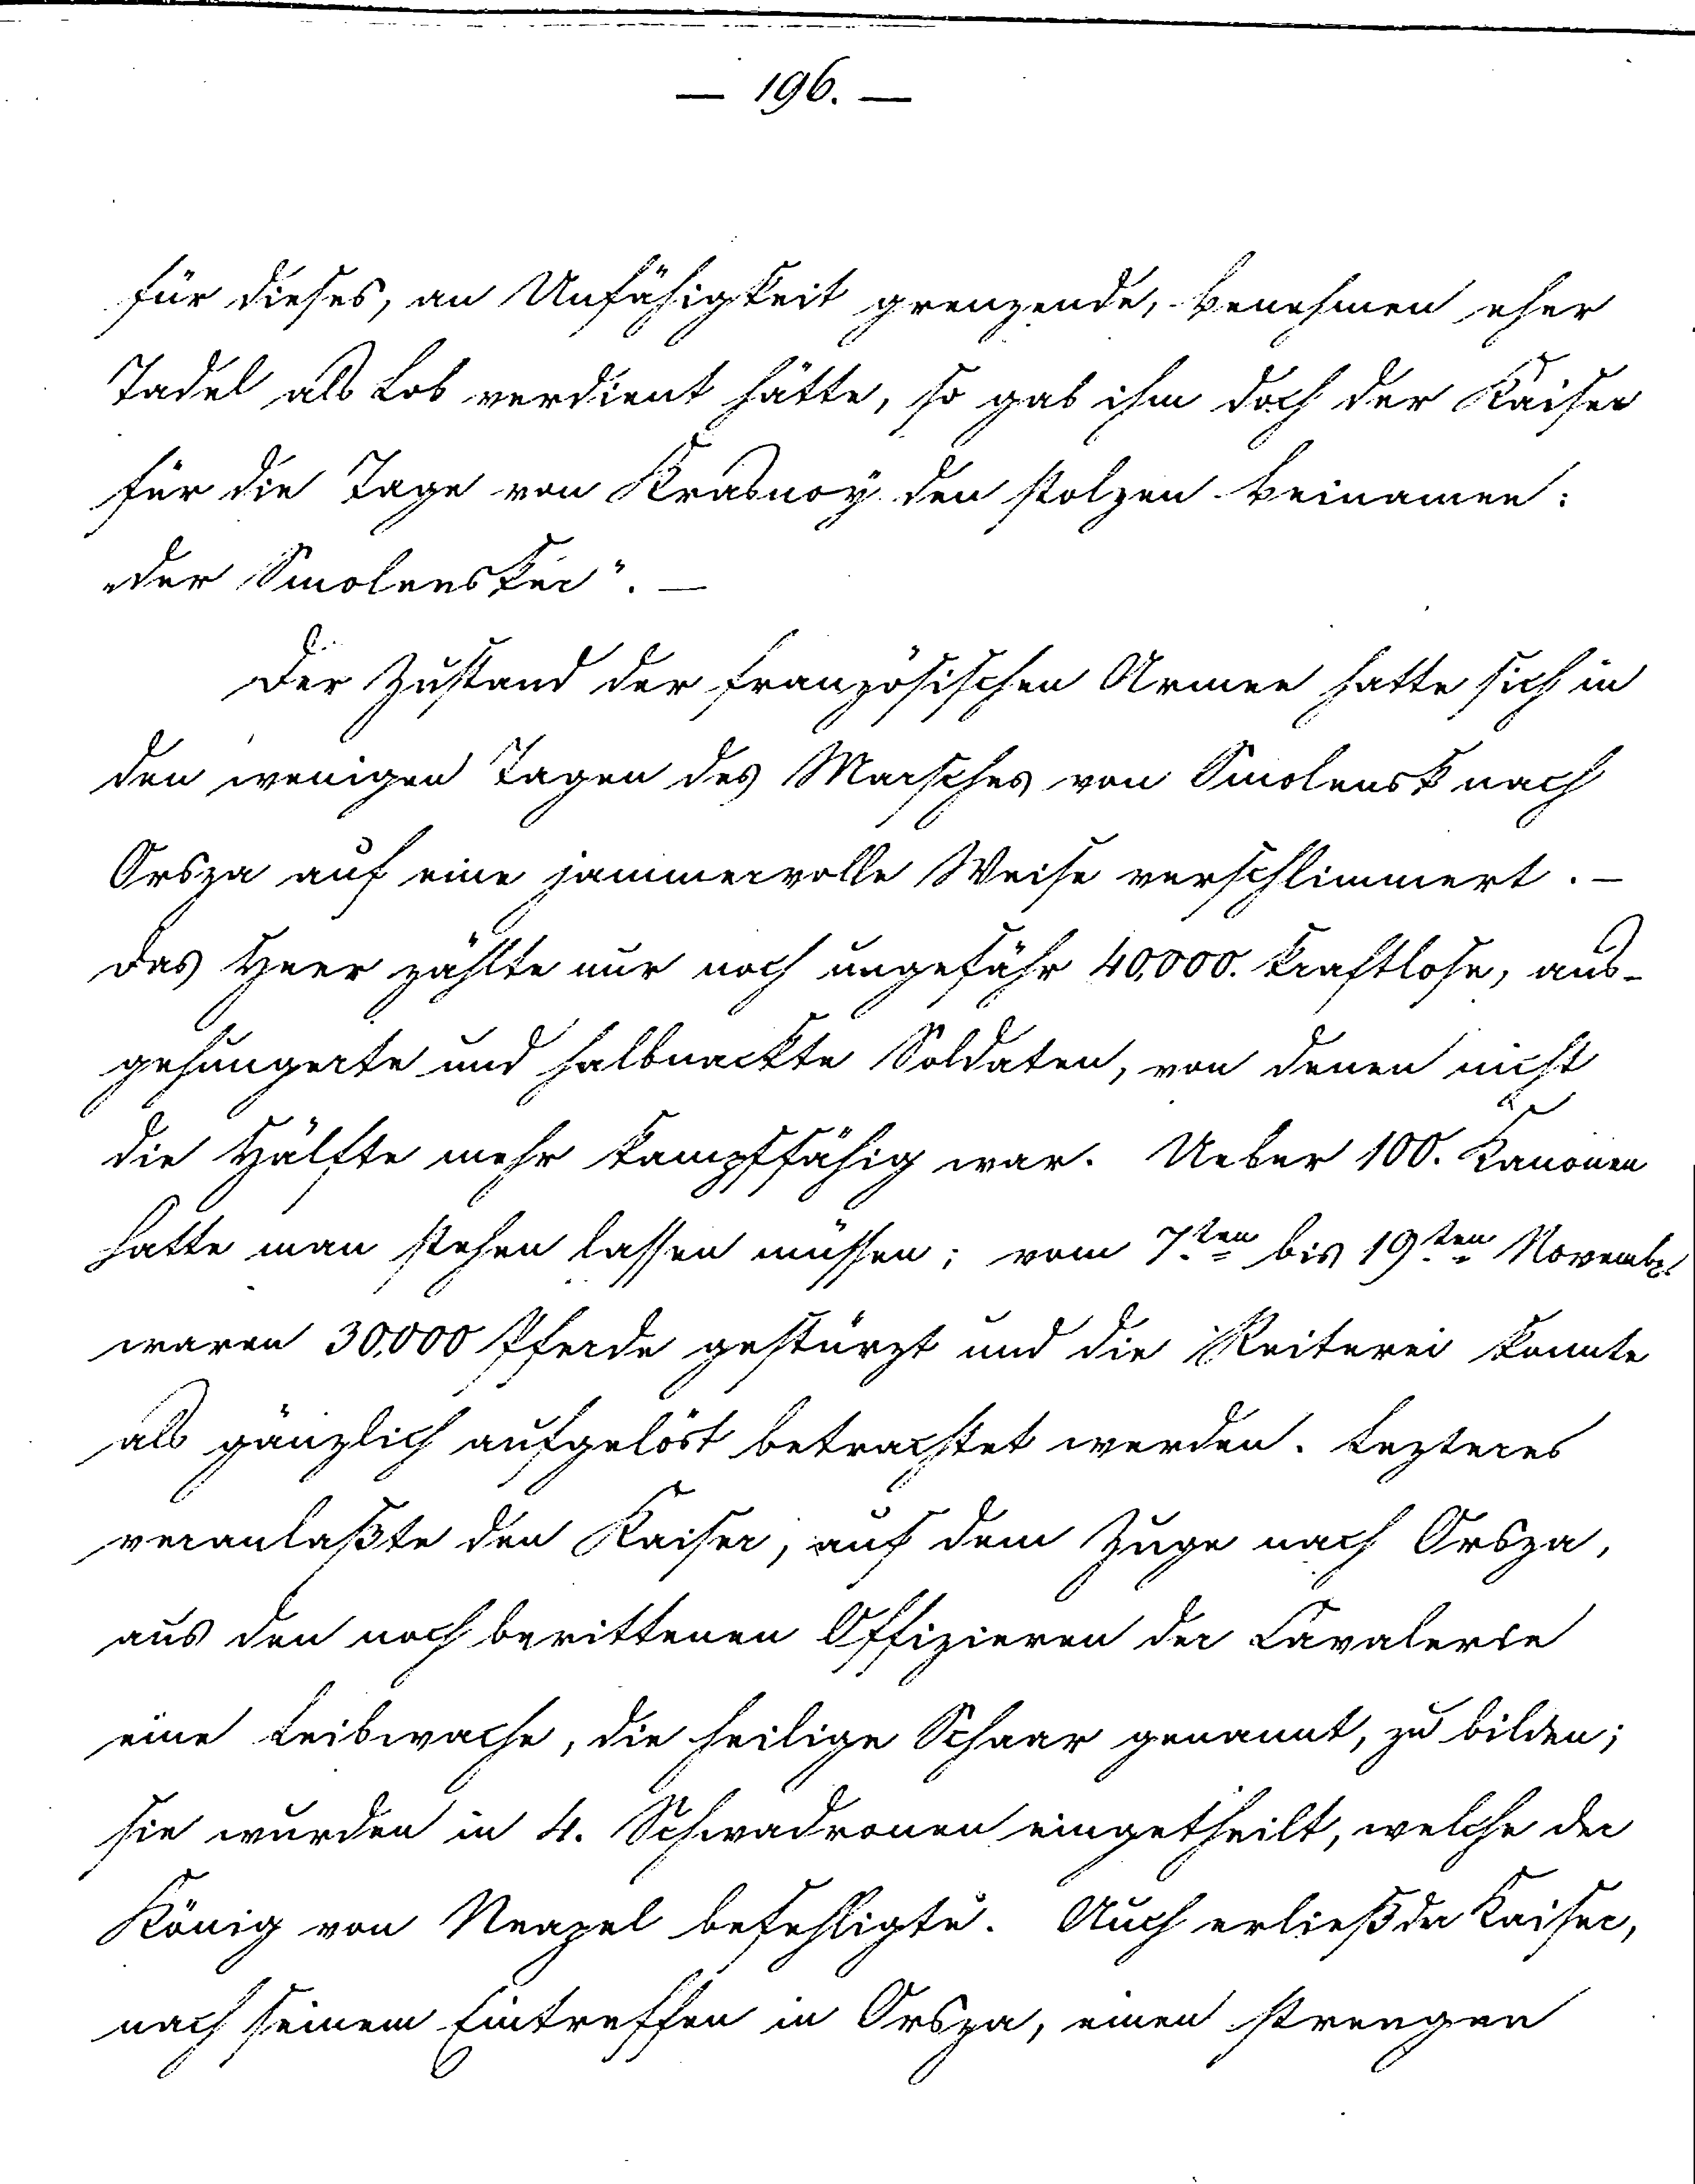 — 196. —
für dieses, an Unfähigkeit grenzende, Benehmen eher
Tadel als Lob verdient hätte, so gab ihm doch der Kaiser
für die Tage von Krasnoÿ den stolzen Beinamen:
„der Smolensker“. —
Der Zustand der französischen Armee hatte sich in
den wenigen Tagen des Marsches von Smolensk nach
Orsza auf eine jammervolle Weise verschlimmert. —
Das Heer zählte nur noch ungefähr 40,000. kraftlose, aus-
gehungerte und halbnackte Soldaten, von denen nicht
die Hälfte mehr kampffähig war. Ueber 100. Kanonen
hatte man stehen lassen müssen; vom 7ten bis 19ten Novembr
waren 30,000 Pferde gestürzt und die Reiterei konnte
als gänzlich aufgelöst betrachtet werden. Lezteres
veranlaßte den Kaiser, auf dem Zuge nach Orsza,
aus den noch berittenen Offizieren der Cavalerie
eine Leibwache, die heilige Schaar genannt, zu bilden;
sie wurden in 4. Schwadronen eingetheilt, welche der
König von Neapel befehligte. Auch erließ der Kaiser,
nach seinem Eintreffen in Orsza, einen strengen